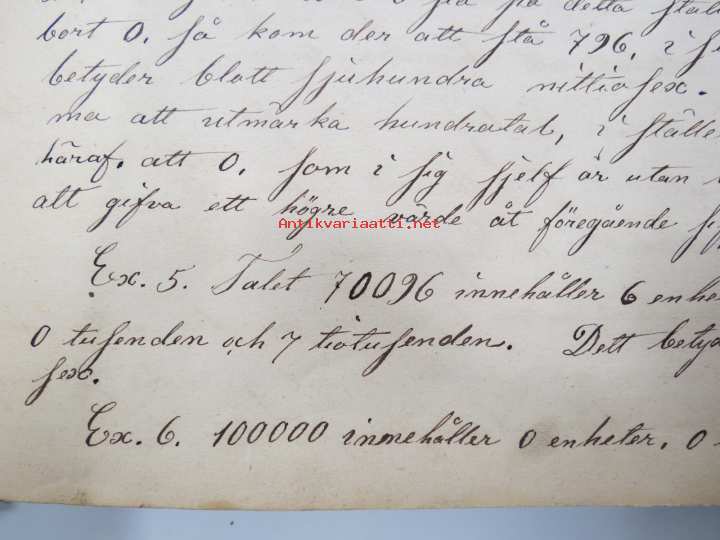 på detta
bort 0. så kom der att stå 796, i
betyder blott sjuhundra nittiosex.
ma att utmärka hundratal, i ställe
häraf. att 0. som i sig sjelf är utan
att gifva ett högre värde åt föregående
Antikvariaatti.net
Ex. 5. Talet 70096 innehåller 6 enhe
0 tusenden och 7 tiotusenden. Dett betyd
sex.
Ex. 6. 100000 innehåller 0 enheter. 0